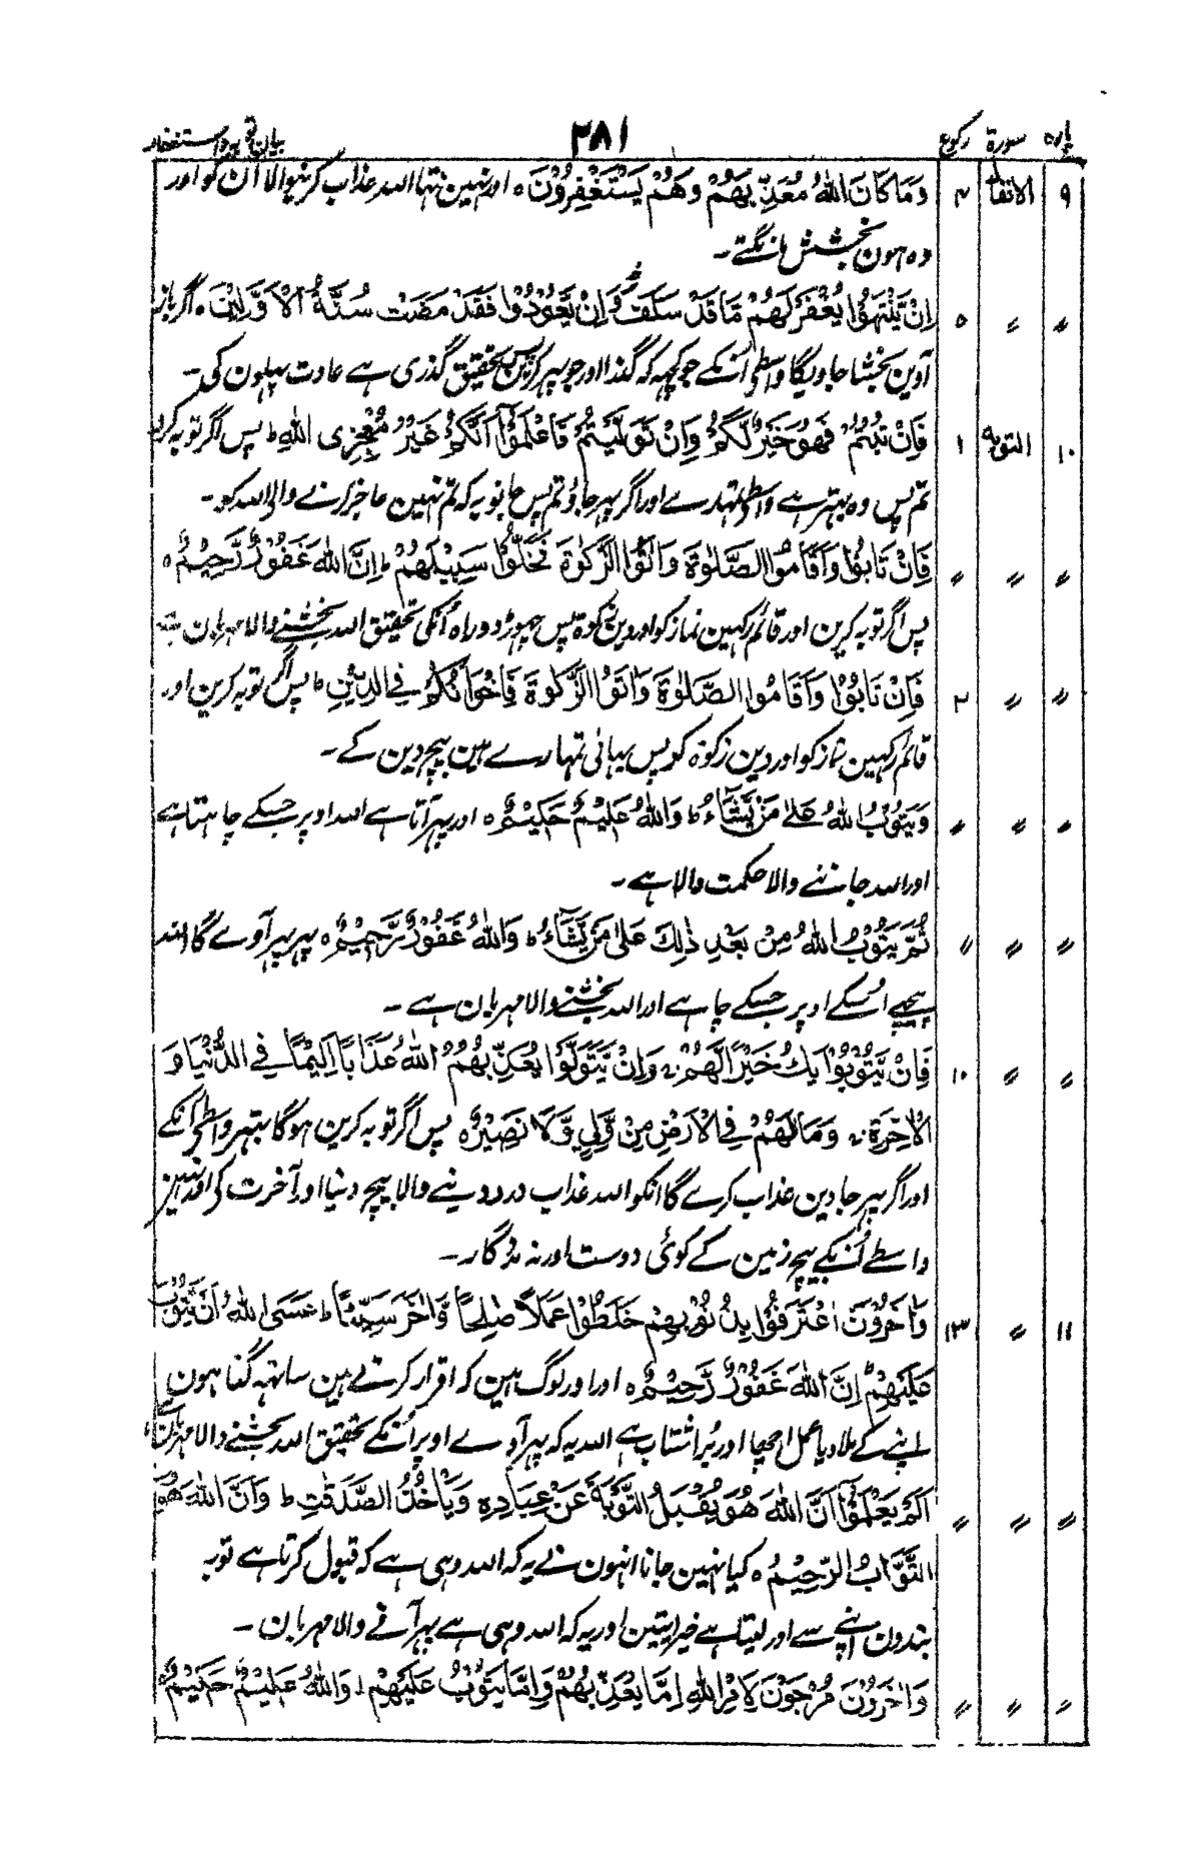 پارہ سورۃ رکوع ۲۸۱ بیان توبہ واستغفار
۹ الانفال ۴ وَمَا كَانَ اللهُ مُعَذِّبَهُمْ وَهُمْ يَسْتَغْفِرُوْنَ ہ اور نہین تہا اللہ عذاب کرنیوالا اُن کو اور
وہ ہون بخشش مانگتے۔
〃 〃 ۵ اِنْ يَّنْتَهُوْا يُغْفَرْ لَهُمْ مَّا قَدْ سَلَفَ وَاِنْ يَّعُوْدُوْا فَقَدْ مَضَتْ سُنَّةُ الْاَوَّلِيْنَ ہ اگر باز
آوین بخشا جاویگا واسطے اُنکے جو کچہہ کہ گذرا اور جو پہر کرین پس تحقیق گذری ہے عادت پہلون کی۔
۱۰ التوبہ ۱ فَاِنْ تُبْتُمْ فَهُوَ خَيْرٌ لَّكُمْ وَاِنْ تَوَلَّيْتُمْ فَاعْلَمُوْٓا اَنَّكُمْ غَيْرُ مُعْجِزِى اللهِ ط پس اگر توبہ کرو
تم پس وہ بہتر ہے واسطے تمہارے اور اگر پہر جاؤ تم پس جانو یہ کہ تم نہین عاجز کرنے والے اللہ کو۔
〃 〃 〃 فَاِنْ تَابُوْا وَاَقَامُوا الصَّلٰوةَ وَاٰتَوُا الزَّكٰوةَ فَخَلُّوْا سَبِيْلَهُمْ ط اِنَّ اللهَ غَفُوْرٌ رَّحِيْمٌ ہ
پس اگر توبہ کرین اور قائم رکہین نماز کو اور دین زکوۃ پس چہوڑ دو راہ اُنکی تحقیق اللہ بخشنے والا مہربان ہے
〃 〃 ۲ فَاِنْ تَابُوْا وَاَقَامُوا الصَّلٰوةَ وَاٰتَوُا الزَّكٰوةَ فَاِخْوَانُكُمْ فِي الدِّيْنِ ط پس اگر توبہ کرین اور
قائم رکہین نماز کو اور دین زکوۃ کو پس بہائی تمہارے ہین بیچ دین کے۔
〃 〃 〃 وَيَتُوْبُ اللهُ عَلٰى مَنْ يَّشَآءُ ط وَاللهُ عَلِيْمٌ حَكِيْمٌ ہ اور پہر آتا ہے اللہ اوپر جسکے چاہتا ہے
اور اللہ جاننے والا حکمت والا ہے۔
〃 〃 〃 ثُمَّ يَتُوْبُ اللهُ مِنْ بَعْدِ ذٰلِكَ عَلٰى مَنْ يَّشَآءُ ط وَاللهُ غَفُوْرٌ رَّحِيْمٌ ہ پہر پہر آوے گا اللہ
پیچہے اُسکے اوپر جسکے چاہے اور اللہ بخشنے والا مہربان ہے۔
〃 〃 ۱۰ فَاِنْ يَّتُوْبُوْا يَكُ خَيْرًا لَّهُمْ ج وَاِنْ يَّتَوَلَّوْا يُعَذِّبْهُمُ اللهُ عَذَابًا اَلِيْمًا فِي الدُّنْيَا وَ
الْاٰخِرَةِ ج وَمَا لَهُمْ فِي الْاَرْضِ مِنْ وَّلِيٍّ وَّلَا نَصِيْرٍ ہ پس اگر توبہ کرین ہوگا بہتر واسطے اُنکے
اور اگر پہر جاوین عذاب کرے گا انکو اللہ عذاب درد دینے والا بیچ دنیا اور آخرت کے اور نہین
واسطے اُنکے بیچ زمین کے کوئی دوست اور نہ مددگار۔
۱۱ 〃 ۱۳ وَاٰخَرُوْنَ اعْتَرَفُوْا بِذُنُوْبِهِمْ خَلَطُوْا عَمَلًا صَالِحًا وَّاٰخَرَ سَيِّئًا ط عَسَى اللهُ اَنْ يَّتُوْبَ
عَلَيْهِمْ ط اِنَّ اللهَ غَفُوْرٌ رَّحِيْمٌ ہ اور اور لوگ ہین کہ اقرار کرتے ہین ساتہہ گناہون
اپنے کے ملا دیا عمل اچہا اور بُرا شتاب ہے اللہ یہ کہ پہر آوے اوپر اُنکے تحقیق اللہ بخشنے والا مہربان ہے
〃 〃 〃 اَلَمْ يَعْلَمُوْٓا اَنَّ اللهَ هُوَ يَقْبَلُ التَّوْبَةَ عَنْ عِبَادِهٖ وَيَاْخُذُ الصَّدَقٰتِ ط وَاَنَّ اللهَ هُوَ
التَّوَّابُ الرَّحِيْمُ ہ کیا نہین جانا انہون نے یہ کہ اللہ وہی ہے کہ قبول کرتا ہے توبہ
بندون اپنے سے اور لیتا ہے خیراتین اور یہ کہ اللہ وہی ہے پہر آنے والا مہربان۔
〃 〃 〃 وَاٰخَرُوْنَ مُرْجَوْنَ لِاَمْرِ اللهِ اِمَّا يُعَذِّبُهُمْ وَاِمَّا يَتُوْبُ عَلَيْهِمْ ط وَاللهُ عَلِيْمٌ حَكِيْمٌ ہ